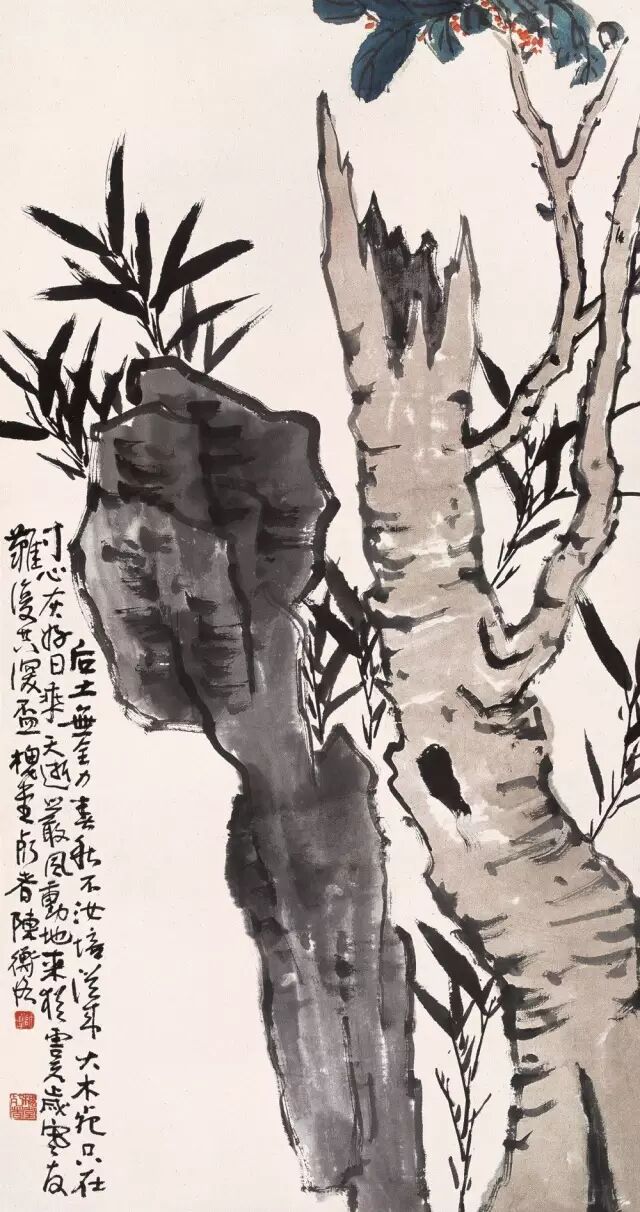 后土無全力春秋不汝培大木死只在
寸心灰好日乘天逝嚴風動地來歲寒友
難復共深盃槐堂朽者陳衡恪